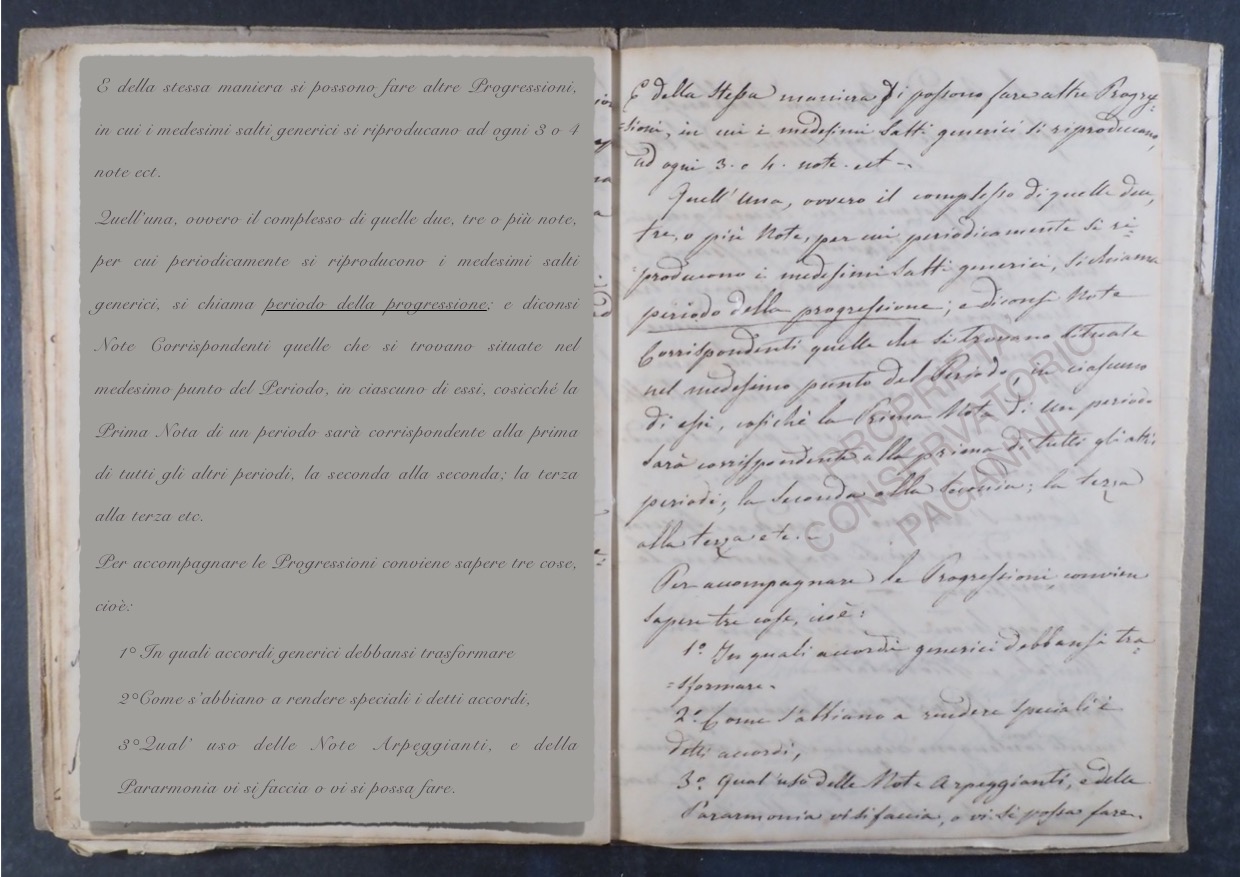 E della stessa maniera si possono fare altre Progressioni,
in cui i medesimi salti generici si riproducano ad ogni 3 o 4
note ect.
Quell'una, ovvero il complesso di quelle due, tre o più note,
per cui periodicamente si riproducono i medesimi salti
generici, si chiama periodo della progressione; e diconsi
Note Corrispondenti quelle che si trovano situate nel
medesimo punto del Periodo, in ciascuno di essi, cosicché la
Prima Nota di un periodo sarà corrispondente alla prima
di tutti gli altri periodi, la seconda alla seconda; la terza
alla terza etc.
Per accompagnare le Progressioni conviene sapere tre cose,
cioè:
1° In quali accordi generici debbansi trasformare
2°Come s'abbiano a rendere speciali i detti accordi,
3°Qual' uso delle Note Arpeggianti, e della
Pararmonia vi si faccia o vi si possa fare.
E della stessa maniera si possono fare altre Progres=
=sioni, in cui i medesimi salti generici si riproducano,
ad ogni 3. o 4. note ect.
Quell'una, ovvero il complesso di quelle due,
tre, o più Note, per cui periodicamente si ri=
=producono i medesimi salti generici, si chiama
periodo della progressione; e diconsi Note
Corrispondenti quelle che si trovano situate
nel medesimo punto del Periodo, in ciascuno
di essi, cosichè la Prima Nota di un periodo
sarà corrispondente alla prima di tutti gli altri
periodi; la seconda alla seconda; la terza
alla terza etc.
Per accompagnare le Progressioni convien
sapere tre cose, cioè:
1° In quali accordi generici debbansi tra=
=sformare.
2° Come s'abbiano a rendere speciali i
detti accordi,
3° Qual'uso delle Note Arpeggianti, e della
Pararmonia vi si faccia, o vi si possa fare.
PROPRIETÀ
CONSERVATORIO
PAGANINI